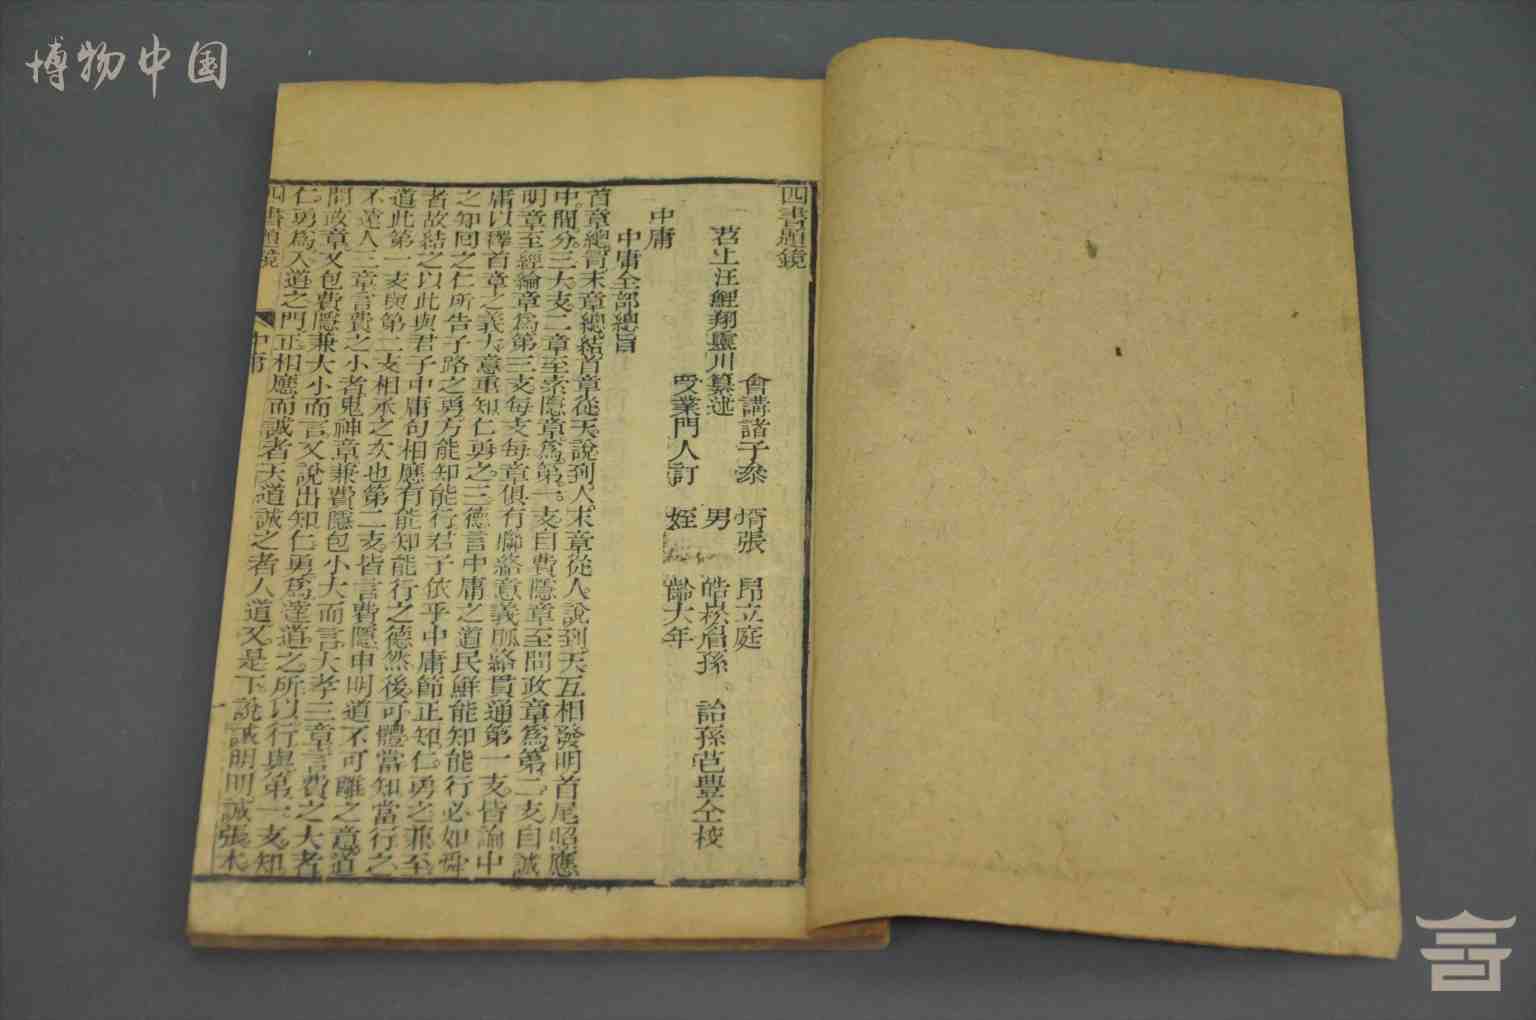 博物中国
四書題鏡
會講諸子叅 壻張 昂立庭
苕上汪鯉翔靈川纂述 男 皓崧眉孫 詒孫芑豐仝校
受業門人訂 姪 齡大年
中庸
中庸全部總旨
首章總冒末章總結首章從天說到人末章從人說到天互相發明首尾照應
中間分三大支二章至素隱章爲第一支自費隱章至問政章爲第二支自誠
明章至經綸章爲第三支每支每章俱有聯絡意義脈絡貫通第一支皆論中
庸以釋首章之義大意重知仁勇之三德言中庸之道民鮮能知能行必如舜
之知回之仁所告子路之勇方能知能行君子依乎中庸節正知仁勇之兼至
者故結之以此與君子中庸句相應有能知能行之德然後可體當知當行之
道此第一支與第二支相承之次也第二支皆言費隱申明道不可離之意道
不遠人三章言費之小者鬼神章兼費隱包小大而言大孝三章言費之大者
問政章又包費隱兼大小而言又說出知仁勇爲達道之所以行與第一支知
仁勇爲入道之門正相應而誠者天道誠之者人道又是下說誠明明誠張本
四書題鏡
中庸